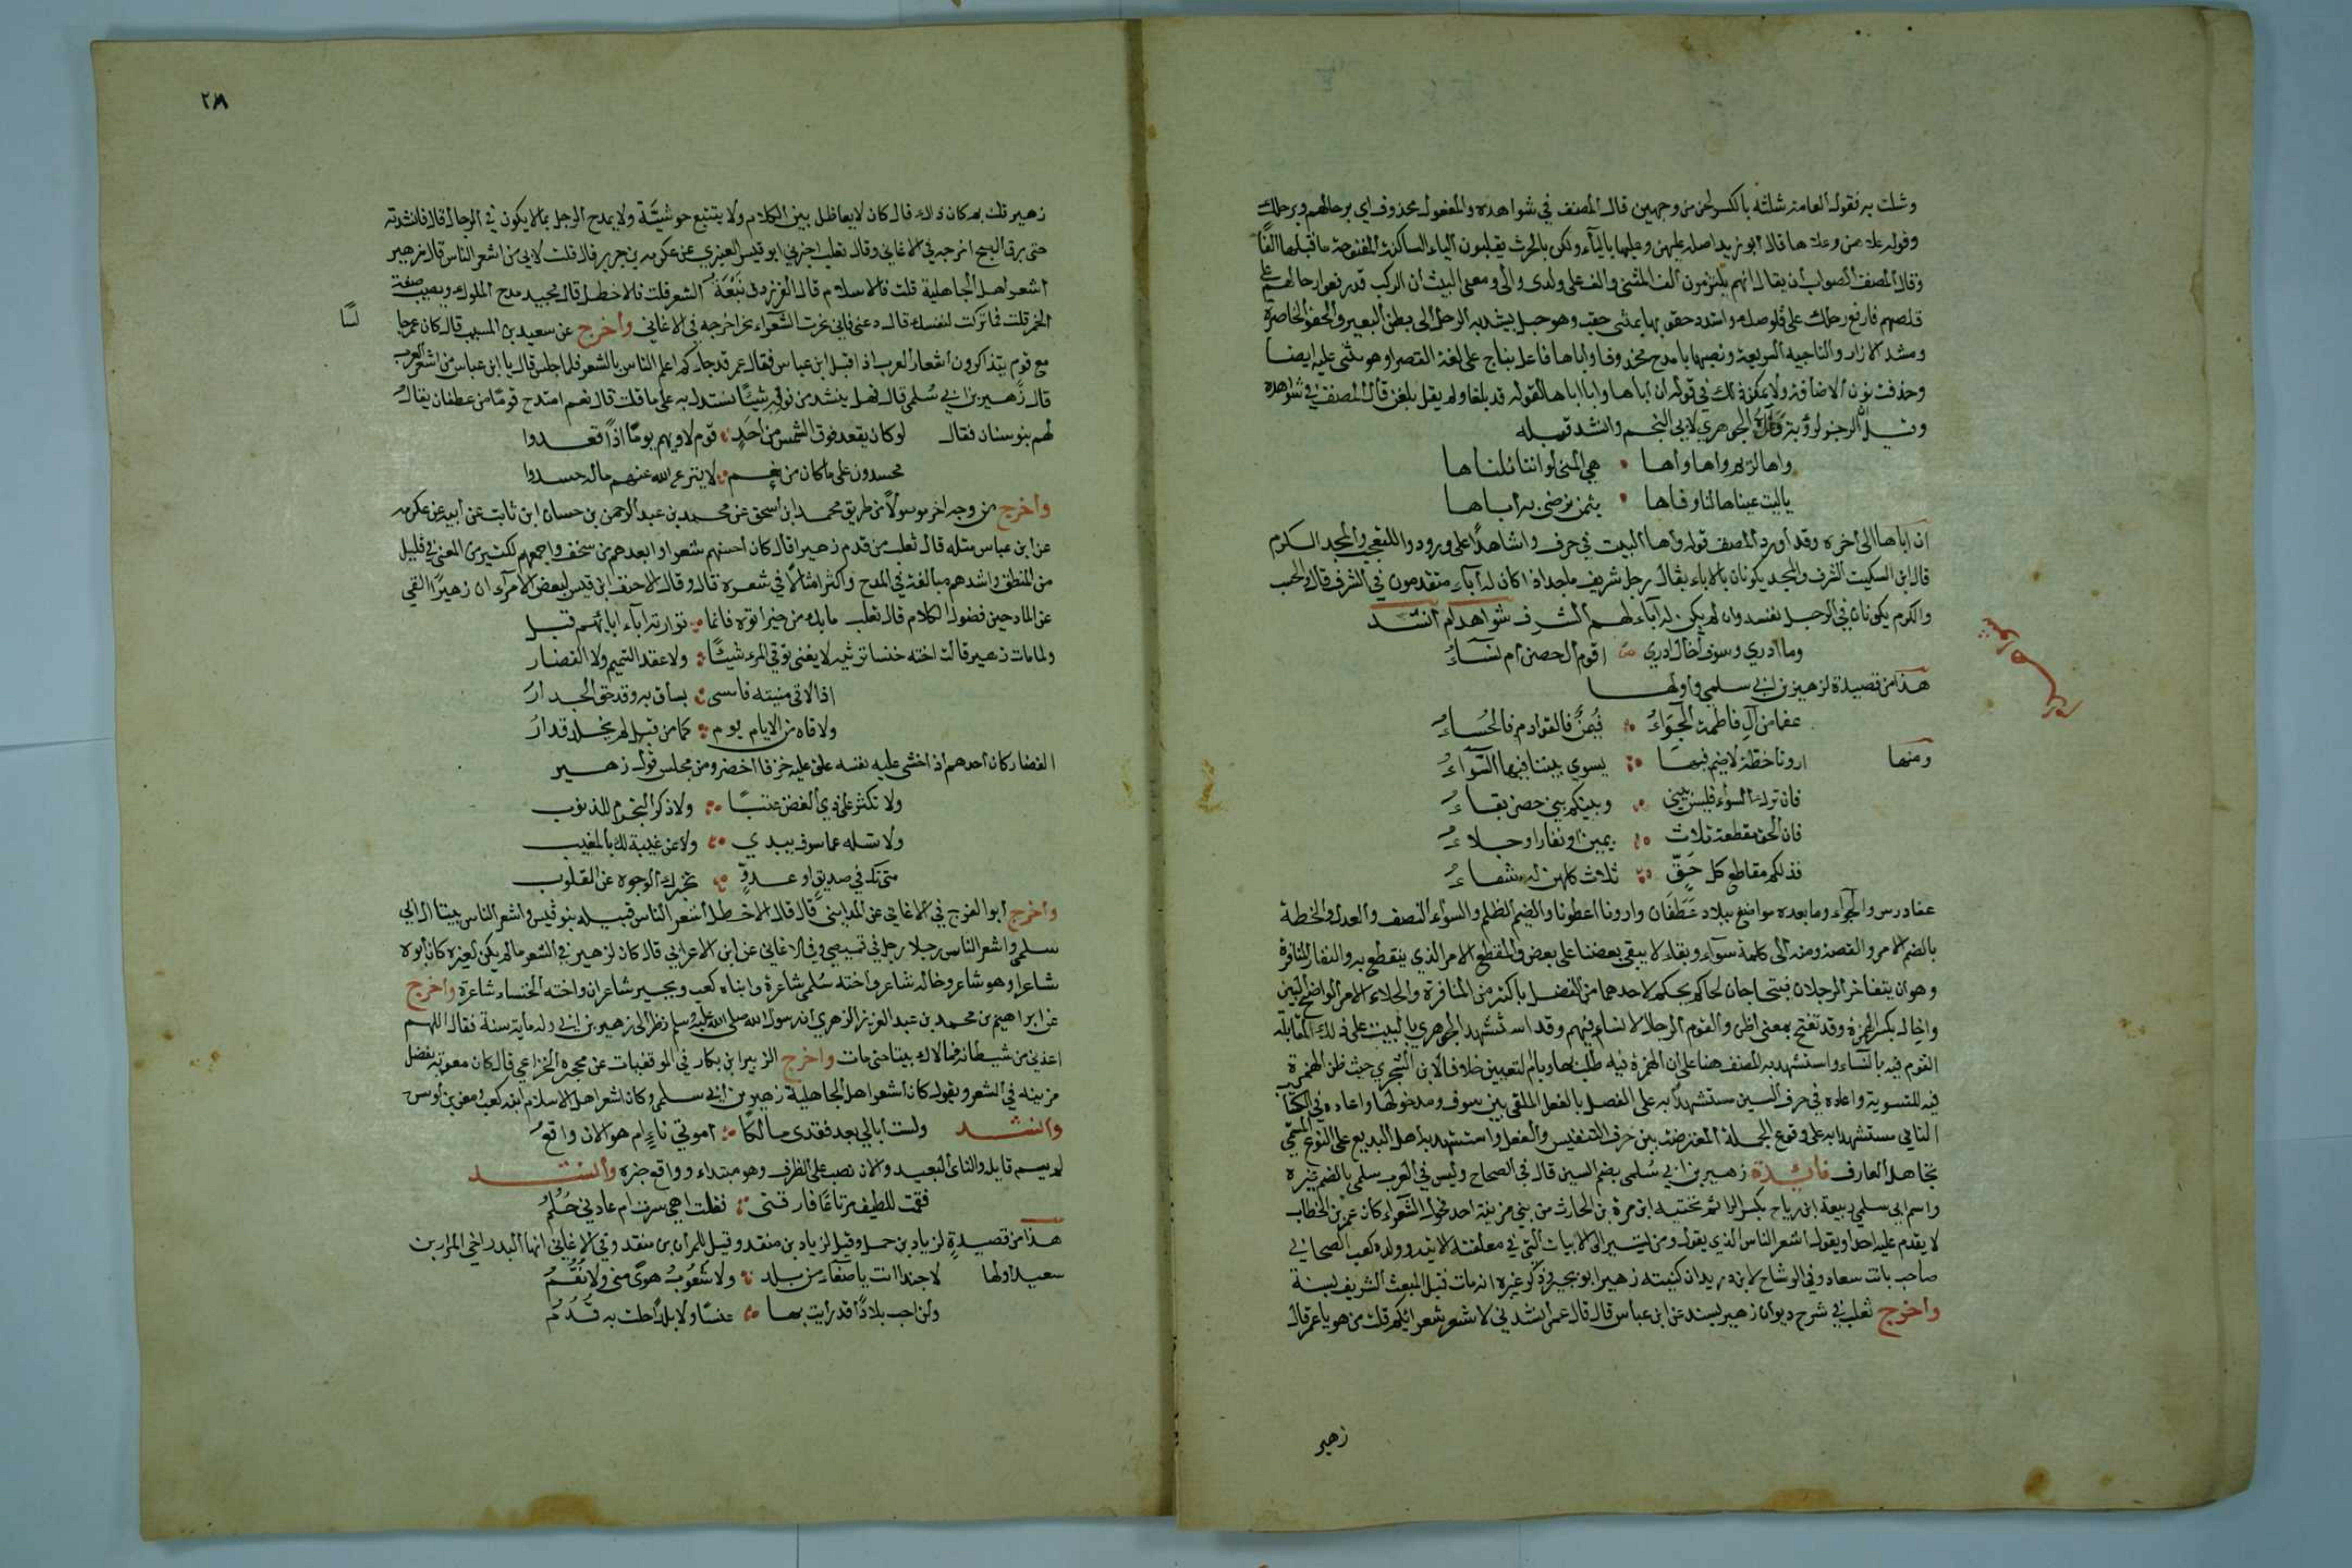 وشلت به فقول العامة شلته بالكسر لحن من وجهين قال المصنف في شواهده والمفعول محذوف اي برحالهم وبرحلك
وقوله علاهن وعلاها قال ابو زيد اصله عليهن وعليها بالياء ولكن بالحرث يقلبون الياء الساكنة المفتوحة ما قبلها الفا
وقال المصنف الصواب أن يقال انهم يلتزمون ألف المثنى وألف على ولدى والى ومعنى البيت أن الركب قد رفعوا رحالهم على
قلصهم فارفع رحلك على قلوصك واشدد حقب بها بمثنى حقب وهو حبل يشد به الرحل الى بطن البعير والحقو الخاصرة
ومشد الازار والناجية السريعة ونصبها بامدح محذوفا واباها فاعل بناج على لغة القصر او هو مثنى عليه ايضا
وحذفت نون الاضافة ولا يمكن ذلك في قوله ان أباها وابا اباها لقوله قد بلغا ولم يقل بلغن قال المصنف في شواهده
الرجز لرؤبة وقال الجوهري لابي النجم وانشد قبله
واها لريا واها واها ۞ هي المنى لو اننا نلناها
ياليت عيناها لنا وفاها ۞ بثمن نرضى به أباها
ان اباها الى أخره وقد أورد المصنف قوله واها البيت في حرف وا شاهدا على ورود وا للتعجب والمجد الكرم
قال ابن السكيت الشرف والمجد يكونان بالاباء يقال رجل شريف ماجد اذا كان له آباء متقدمون في الشرف قال والحسب
والكرم يكونان في الرجل بنفسه وان لم يكن له آباء لهم الشرف شواهد ام انشد
وما ادري وسوف أخال ادري ۞ اقوم ال حصن أم نساء
هذا من قصيدة لزهير بن ابي سلمى واولها
عفا من آل فاطمة الجواء ۞ فيمن فالقوادم فالحساء
ومنها اروناخطة لا ضيم فيها ۞ يسوى بيننا فيها السواء
فان ترك السواء فليس بيني ۞ وبينكم بني حصن بقاء
فان الحق مقطعه ثلاث ۞ يمين او نفار او جلاء
فذلكم مقاطع كل حق ۞ ثلاث كلهن لكم شفاء
عفا درس والجواء وما بعده مواضع ببلاد غطفان وارونا اعطونا والضيم الظلم والسواء النصف والعدل والخطة
بالضم الامر والقصة ومنه الى كلمة سواء وبقاء لا يبقى بعضنا على بعض والمقطع الامر الذي ينقطع به والنفار المنافرة
وهو ان يتفاخر الرجلان فيتحاجان لحاكم يحكم لاحدهما من الفضل باكثر من المنافرة والجلاء الامر الواضح البين
واخال بكسر الهمزة وقد تفتح بمعنى اظن والقوم الرجال لا نساء فيهم وقد استشهد الجوهري بالبيت على ذلك لمقابلة
القوم فيه بالنساء واستشهد به المصنف هنا على ان الهمزة فيه طلب بها وبام التعيين خلافا لابن الشجري حيث ظن الهمزة
فيه للتسوية واعاده في حرف السين مستشهدا به على الفصل بالفعل الملقى بين سوف ومدخولها واعاده في الكتاب
الثاني مستشهدا به على وقوع الجملة المعترضة بين حرف التنفيس والفعل واستشهد به اهل البديع على النوع المسمى
تجاهل العارف فائدة زهير بن ابي سلمى بضم السين قال في الصحاح وليس في العرب سلمى بالضم غيره
واسم ابي سلمى ربيعة ابن رياح بكسر الراء ثم تحتيه ابن مرة بن الحارث من بني مزينة احد فحول الشعراء كان عمر بن الخطاب
لا يقدم عليه احدا ويقول اشعر الناس الذي يقول ومن يشير الى الابيات التي في معلقته الاتيه وولده كعب الصحابي
صاحب بانت سعاد وفي الوشاح لابن دريد ان كنيته زهير ابو بجير وذكر غيره انه مات قبل المبعث الشريف بسنة
واخرج ثعلب في شرح ديوان زهير بسند عن ابن عباس قال قال عمر انشدني لاشعر شعرائكم قلت من هو يا عمر قال
زهير
٢٨
زهير قلت بم كان ذلك قال كان لا يعاظل بين الكلام ولا يتتبع حوشيه ولا يمدح الرجل بما لا يكون في الرجال قال فانشدته
حتى برق الصبح اخرجه في الاغاني وقال ثعلب اخبرني ابو قيس العنبري عن عكرمه بن جرير قال قلت لابي من اشعر الناس قال زهير
اشعر اهل الجاهلية قلت فالاسلام قال الفرزدق نبعة الشعر قلت فالاخطل قال يجيد مدح الملوك ويصيب صفة
الخمر قلت فما تركت لنفسك قال دعني فاني نحرت الشعراء نحرا خرجه في الاغاني واخرج عن سعيد بن المسيب قال كان عمر جالسا
مع قوم يتذاكرون اشعار العرب اذ اقبل ابن عباس فقال عمر قد جاءكم اعلم الناس بالشعر فلما جلس قال يا ابن عباس من اشعر العرب
قال زهير بن ابي سلمى قال فهل ينشد من قوله شيئا نستدل به على ما قلت قال نعم امتدح قوما من غطفان يقال
لهم بنو سنان فقال لو كان يقعد فوق الشمس من احد ۞ قوم لاولهم يوما اذا قعدوا
محسدون على ما كان من نعم ۞ لا ينزع الله عنهم ماله حسدوا
واخرج من وجه اخر موصولا من طريق محمد ابن اسحق عن محمد بن عبد الرحمن بن حسان ابن ثابت عن أبيه عن عكرمه
عن ابن عباس مثله قال ثعلب من قدم زهيرا قال كان احسنهم شعرا وابعدهم من سخف واجمعهم لكثير من المعنى في قليل
من المنطق واشدهم مبالغة في المدح واكثر امثالا في شعره قال وقال الاحنف ابن قيس لبعض الامراء ان زهيرا القي
عن المادحين فضول الكلام قال ثعلب ما يك من خير اتوه فانما ۞ توارثه آباء ابائهم قبل
ولما مات زهير قالت اخته خنسا ترثيه لا يغني توقي المرء شيئا ۞ ولا عقد التميم ولا الغضار
اذا لاقى منيته فامسى ۞ يساق به وقد حق الحدار
ولاقاه من الايام يوم ۞ كما من قبل لم يخلد قدار
الغضار كان احدهم اذا خشى عليه نفسه علق عليه خزفا اخضر ومن مجلس قول زهير
ولا تكثر على ذي الضغن عتبا ۞ ولا ذكر التجرم للذنوب
ولا تسله عما سوف يبدي ۞ ولا عن غيبة لك بالمغيب
متى تك في صديق او عدو ۞ تخبرك الوجوه عن القلوب
واخرج أبو الفرج في الاغاني عن المدايني قال قال الاخطل أشعر الناس قبيله بنو قيس واشعر الناس بيتا ال ابي
سلمى واشعر الناس رجلا رجل في قميصي وفي الاغاني عن ابن الاعرابي قال كان لزهير في الشعر ما لم يكن لغيره كان أبوه
شاعرا وهو شاعر وخاله شاعر واخته سلمى شاعرة وابناه كعب وبجير شاعران واخته الخنساء شاعرة واخرج
عن ابراهيم بن محمد بن عبد العزيز الزهري ان رسول الله صلى الله عليه وسلم نظر الى زهير بن ابي وله ماية سنة فقال اللهم
اعذني من شيطانه فما لاك بيتا حتى مات واخرج الزبير ابن بكار في الموفقيات عن الخزاعي قال كان معوية يفضل
مزينه في الشعر ويقول كان اشعر اهل الجاهلية زهير بن ابي سلمى وكان اشعر اهل الاسلام ابنه كعب ومعن بن أوس
وانشد ولست ابالي بعد فقدي مالكا ۞ اموتي ناء ام هو الان واقع
لم يسم قايله والنائ البعيد والان نصب على الظرف وهو مبتداء وواقع خبره وانشد
فقمت للطيف مرتاعا فارقني ۞ فقلت اهي سرت ام عادني حلم
هذا من قصيدة لزياد بن حمل وقيل لزياد بن منقذ وقيل للمرار بن منقذ وفي الاغاني انها البدر اخي المرار بن
سعيد اولها لا حبذا انت يا صنعاء من بلد ۞ ولا شعوب هوى مني ولا نقم
ولن احب بلادا قد رايت بها ۞ عنسا ولا بلدا حلت به قدم